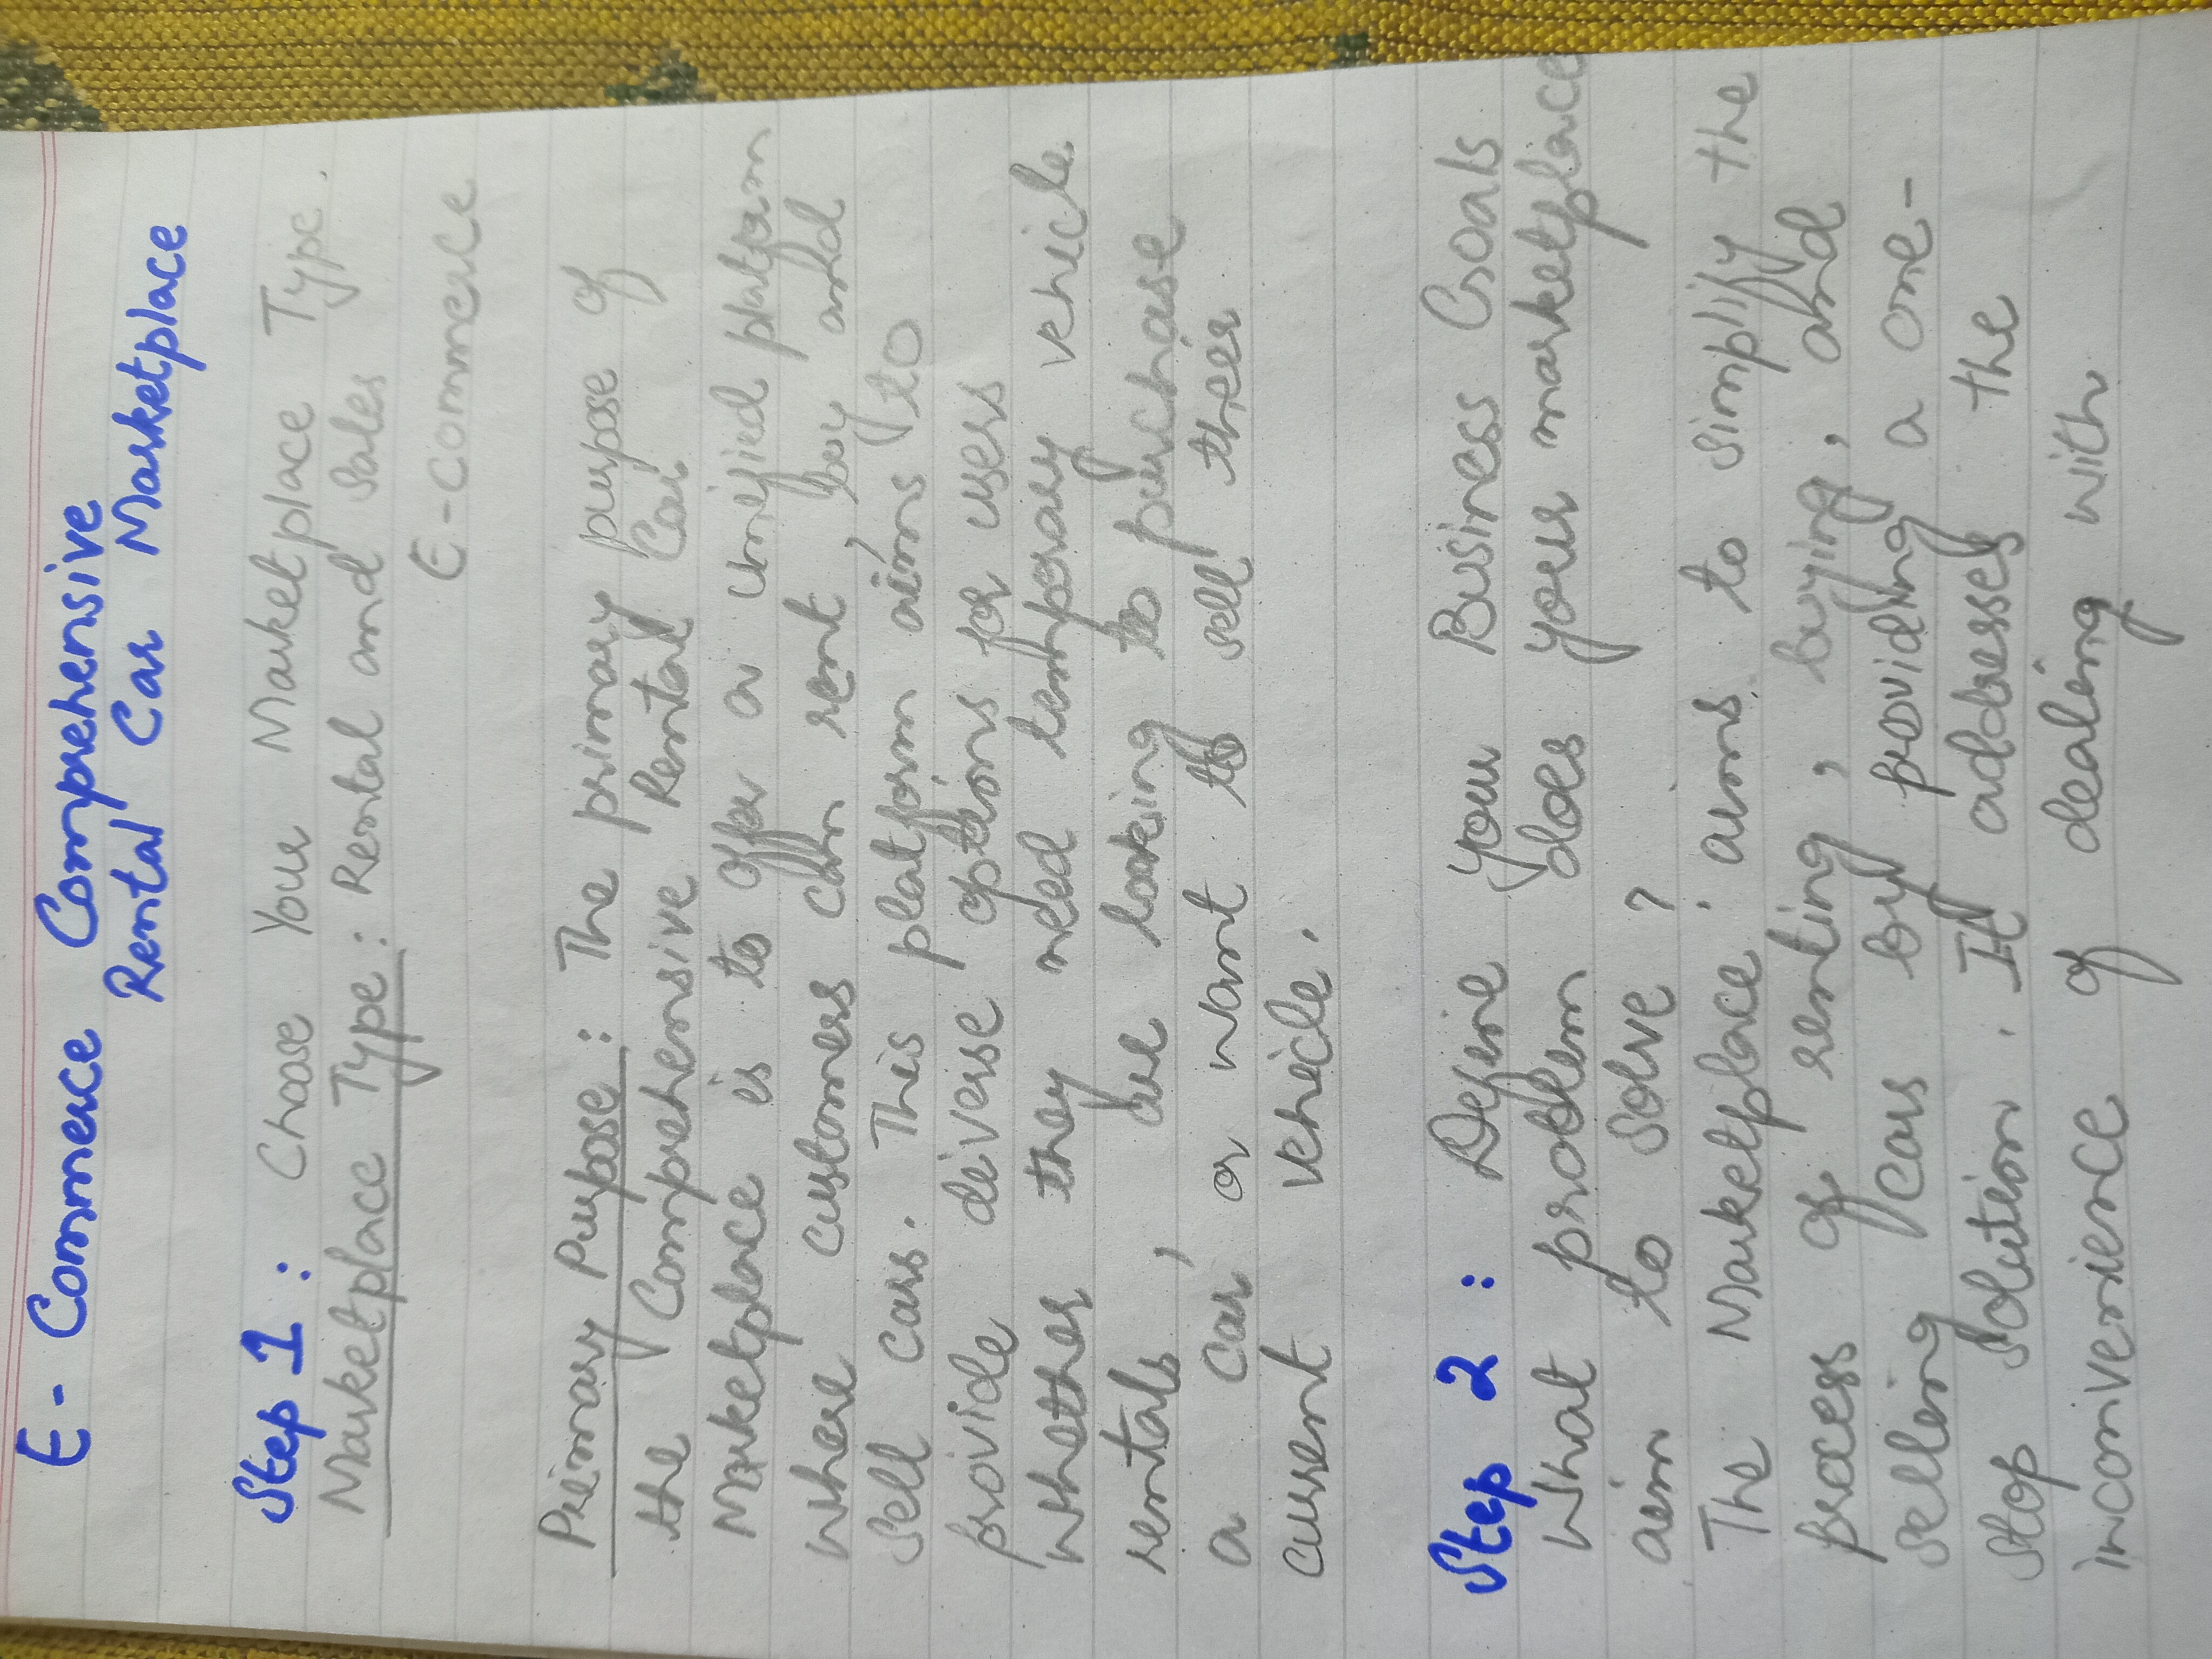 E- Commerce Comprehensive
Rental Car Marketplace
Step 1 : Choose Your Marketplace Type.
Marketplace Type : Rental and Sales
E-Commerce
Primary Purpose : The primary purpose of
the Comprehensive Rental Car
Marketplace is to offer a unified platform
where customers can rent, buy and
Sell cars. This platform aims to
provide diverse options for users
whether they need temporary vehicle
rentals, are looking to purchase
a car or want to sell their
current vehicle.
Step 2 : Define your Business Goals
What problem does your marketplace
aim to Solve ?
The Marketplace aims to simplify the
process of renting, buying, and
selling cars by providing a one-
stop solution. It addresses the
inconvenience of dealing with